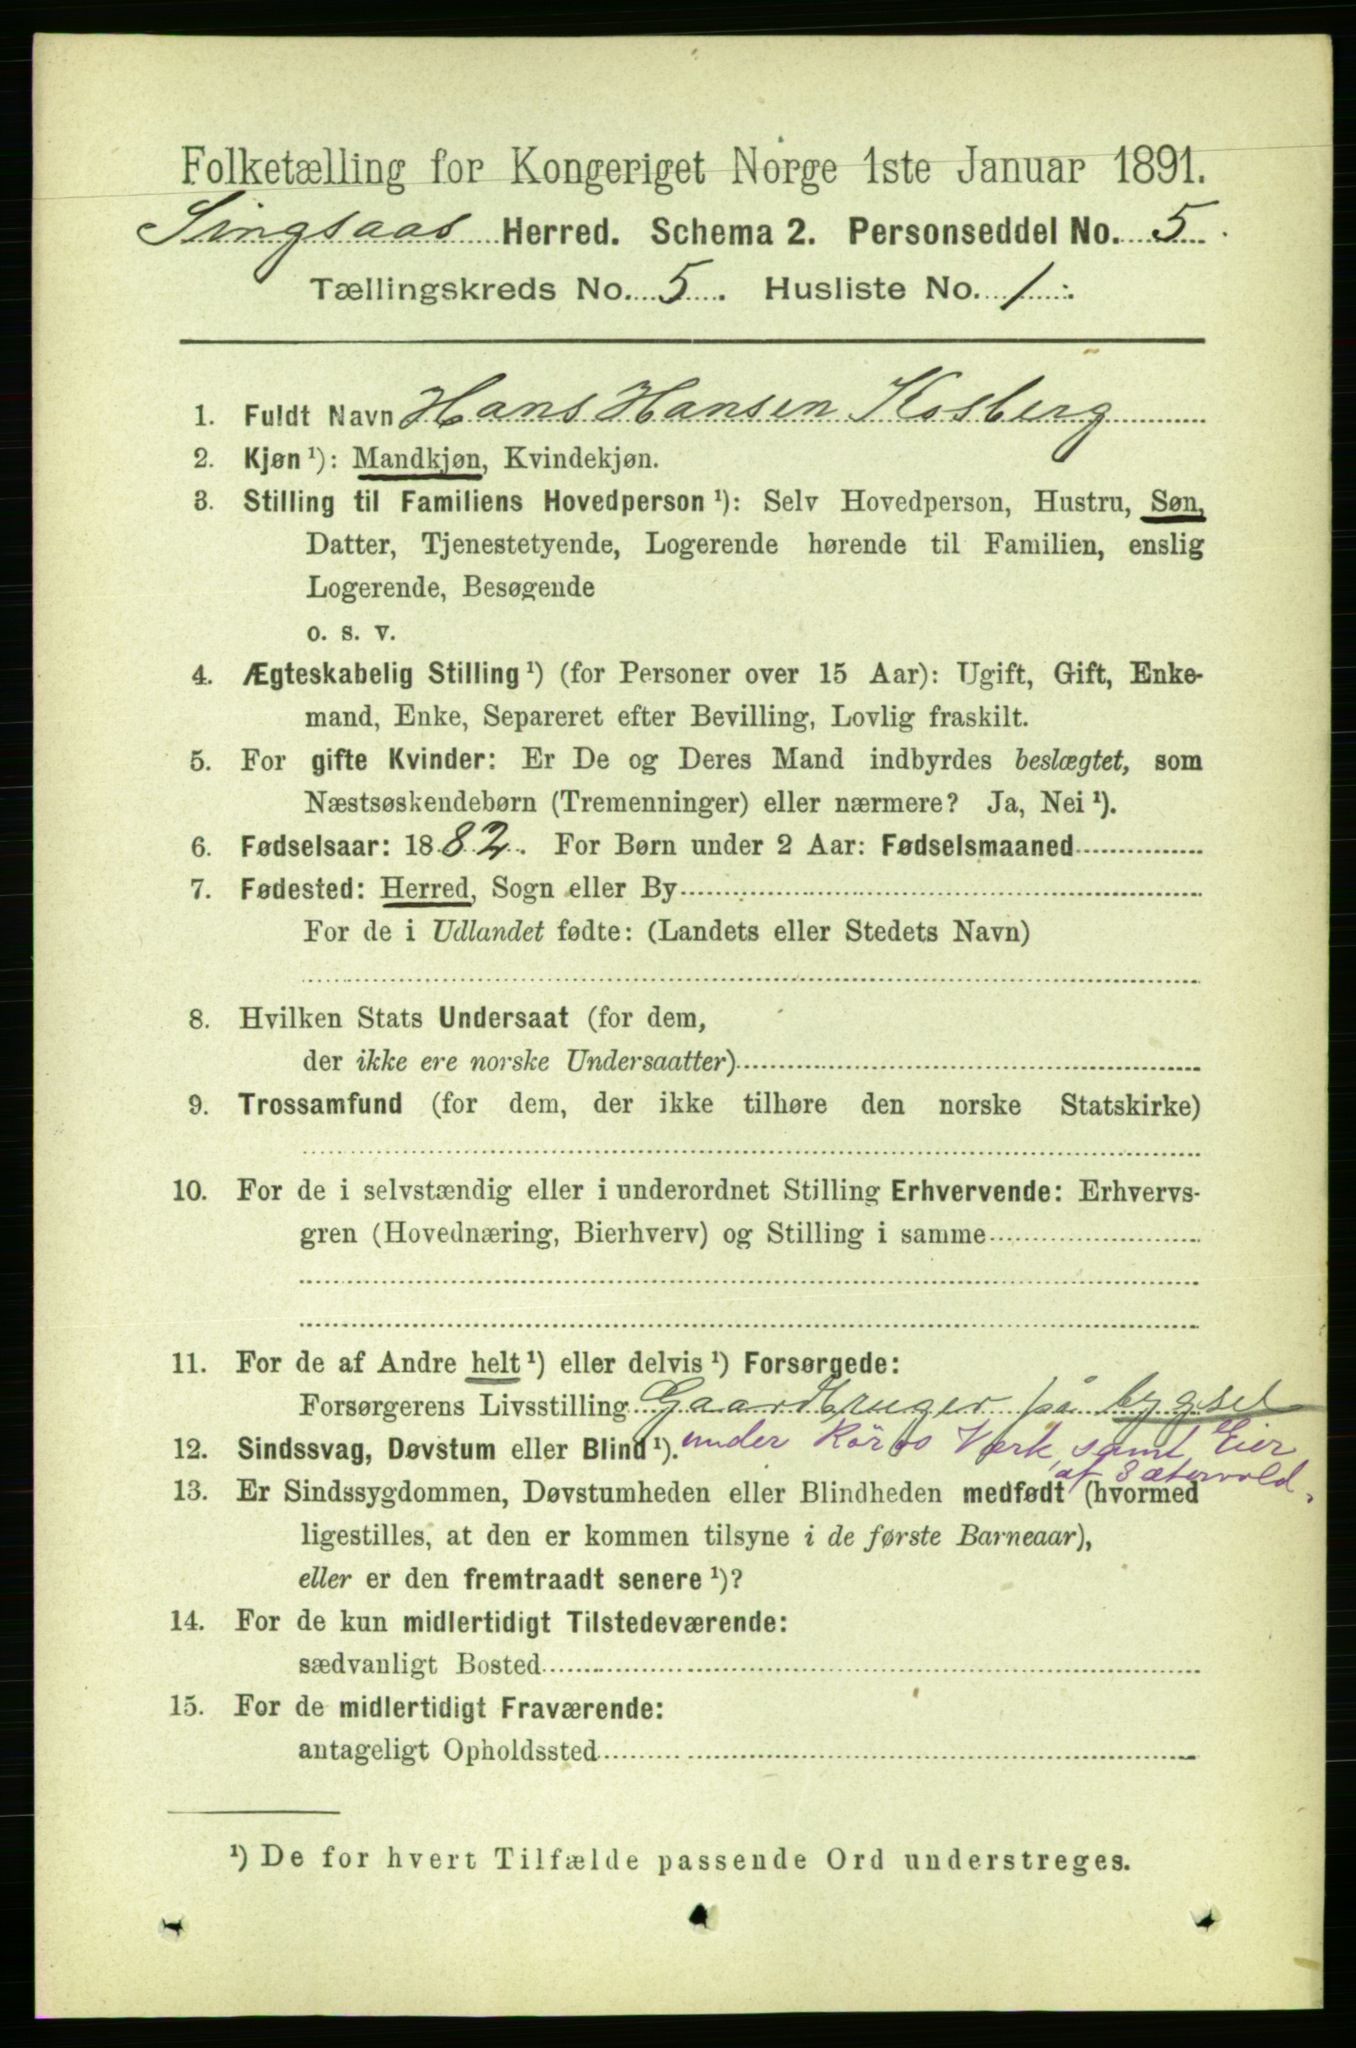 Folketælling for Kongeriget Norge 1ste Januar 1891.
Singsaas Herred. Schema 2. Personseddel No. 5.
Tællingskreds No. 5. Husliste No. 1.
1. Fuldt Navn Hans Hansen Kosberg
2. Kjøn ¹): Mandkjøn, Kvindekjøn.
3. Stilling til Familiens Hovedperson ¹): Selv Hovedperson, Hustru, Søn,
Datter, Tjenestetyende, Logerende hørende til Familien, enslig
Logerende, Besøgende
o. s. v.
4. Ægteskabelig Stilling ¹) (for Personer over 15 Aar): Ugift, Gift, Enke-
mand, Enke, Separeret efter Bevilling, Lovlig fraskilt.
5. For gifte Kvinder: Er De og Deres Mand indbyrdes beslægtet, som
Næstsøskendebørn (Tremenninger) eller nærmere? Ja, Nei ¹).
6. Fødselsaar: 1882. For Børn under 2 Aar: Fødselsmaaned
7. Fødested: Herred, Sogn eller By
For de i Udlandet fødte: (Landets eller Stedets Navn)
8. Hvilken Stats Undersaat (for dem,
der ikke ere norske Undersaatter)
9. Trossamfund (for dem, der ikke tilhøre den norske Statskirke)
10. For de i selvstændig eller i underordnet Stilling Erhvervende: Erhvervs-
gren (Hovednæring, Bierhverv) og Stilling i samme
11. For de af Andre helt ¹) eller delvis ¹) Forsørgede:
Forsørgerens Livsstilling Gaardbruger på bygsel
12. Sindssvag, Døvstum eller Blind ¹). under Röros Værk, samt Eier
af Sætervold.
13. Er Sindssygdommen, Døvstumheden eller Blindheden medfødt (hvormed
ligestilles, at den er kommen tilsyne i de første Barneaar),
eller er den fremtraadt senere ¹)?
14. For de kun midlertidigt Tilstedeværende:
sædvanligt Bosted
15. For de midlertidigt Fraværende:
antageligt Opholdssted
¹) De for hvert Tilfælde passende Ord understreges.